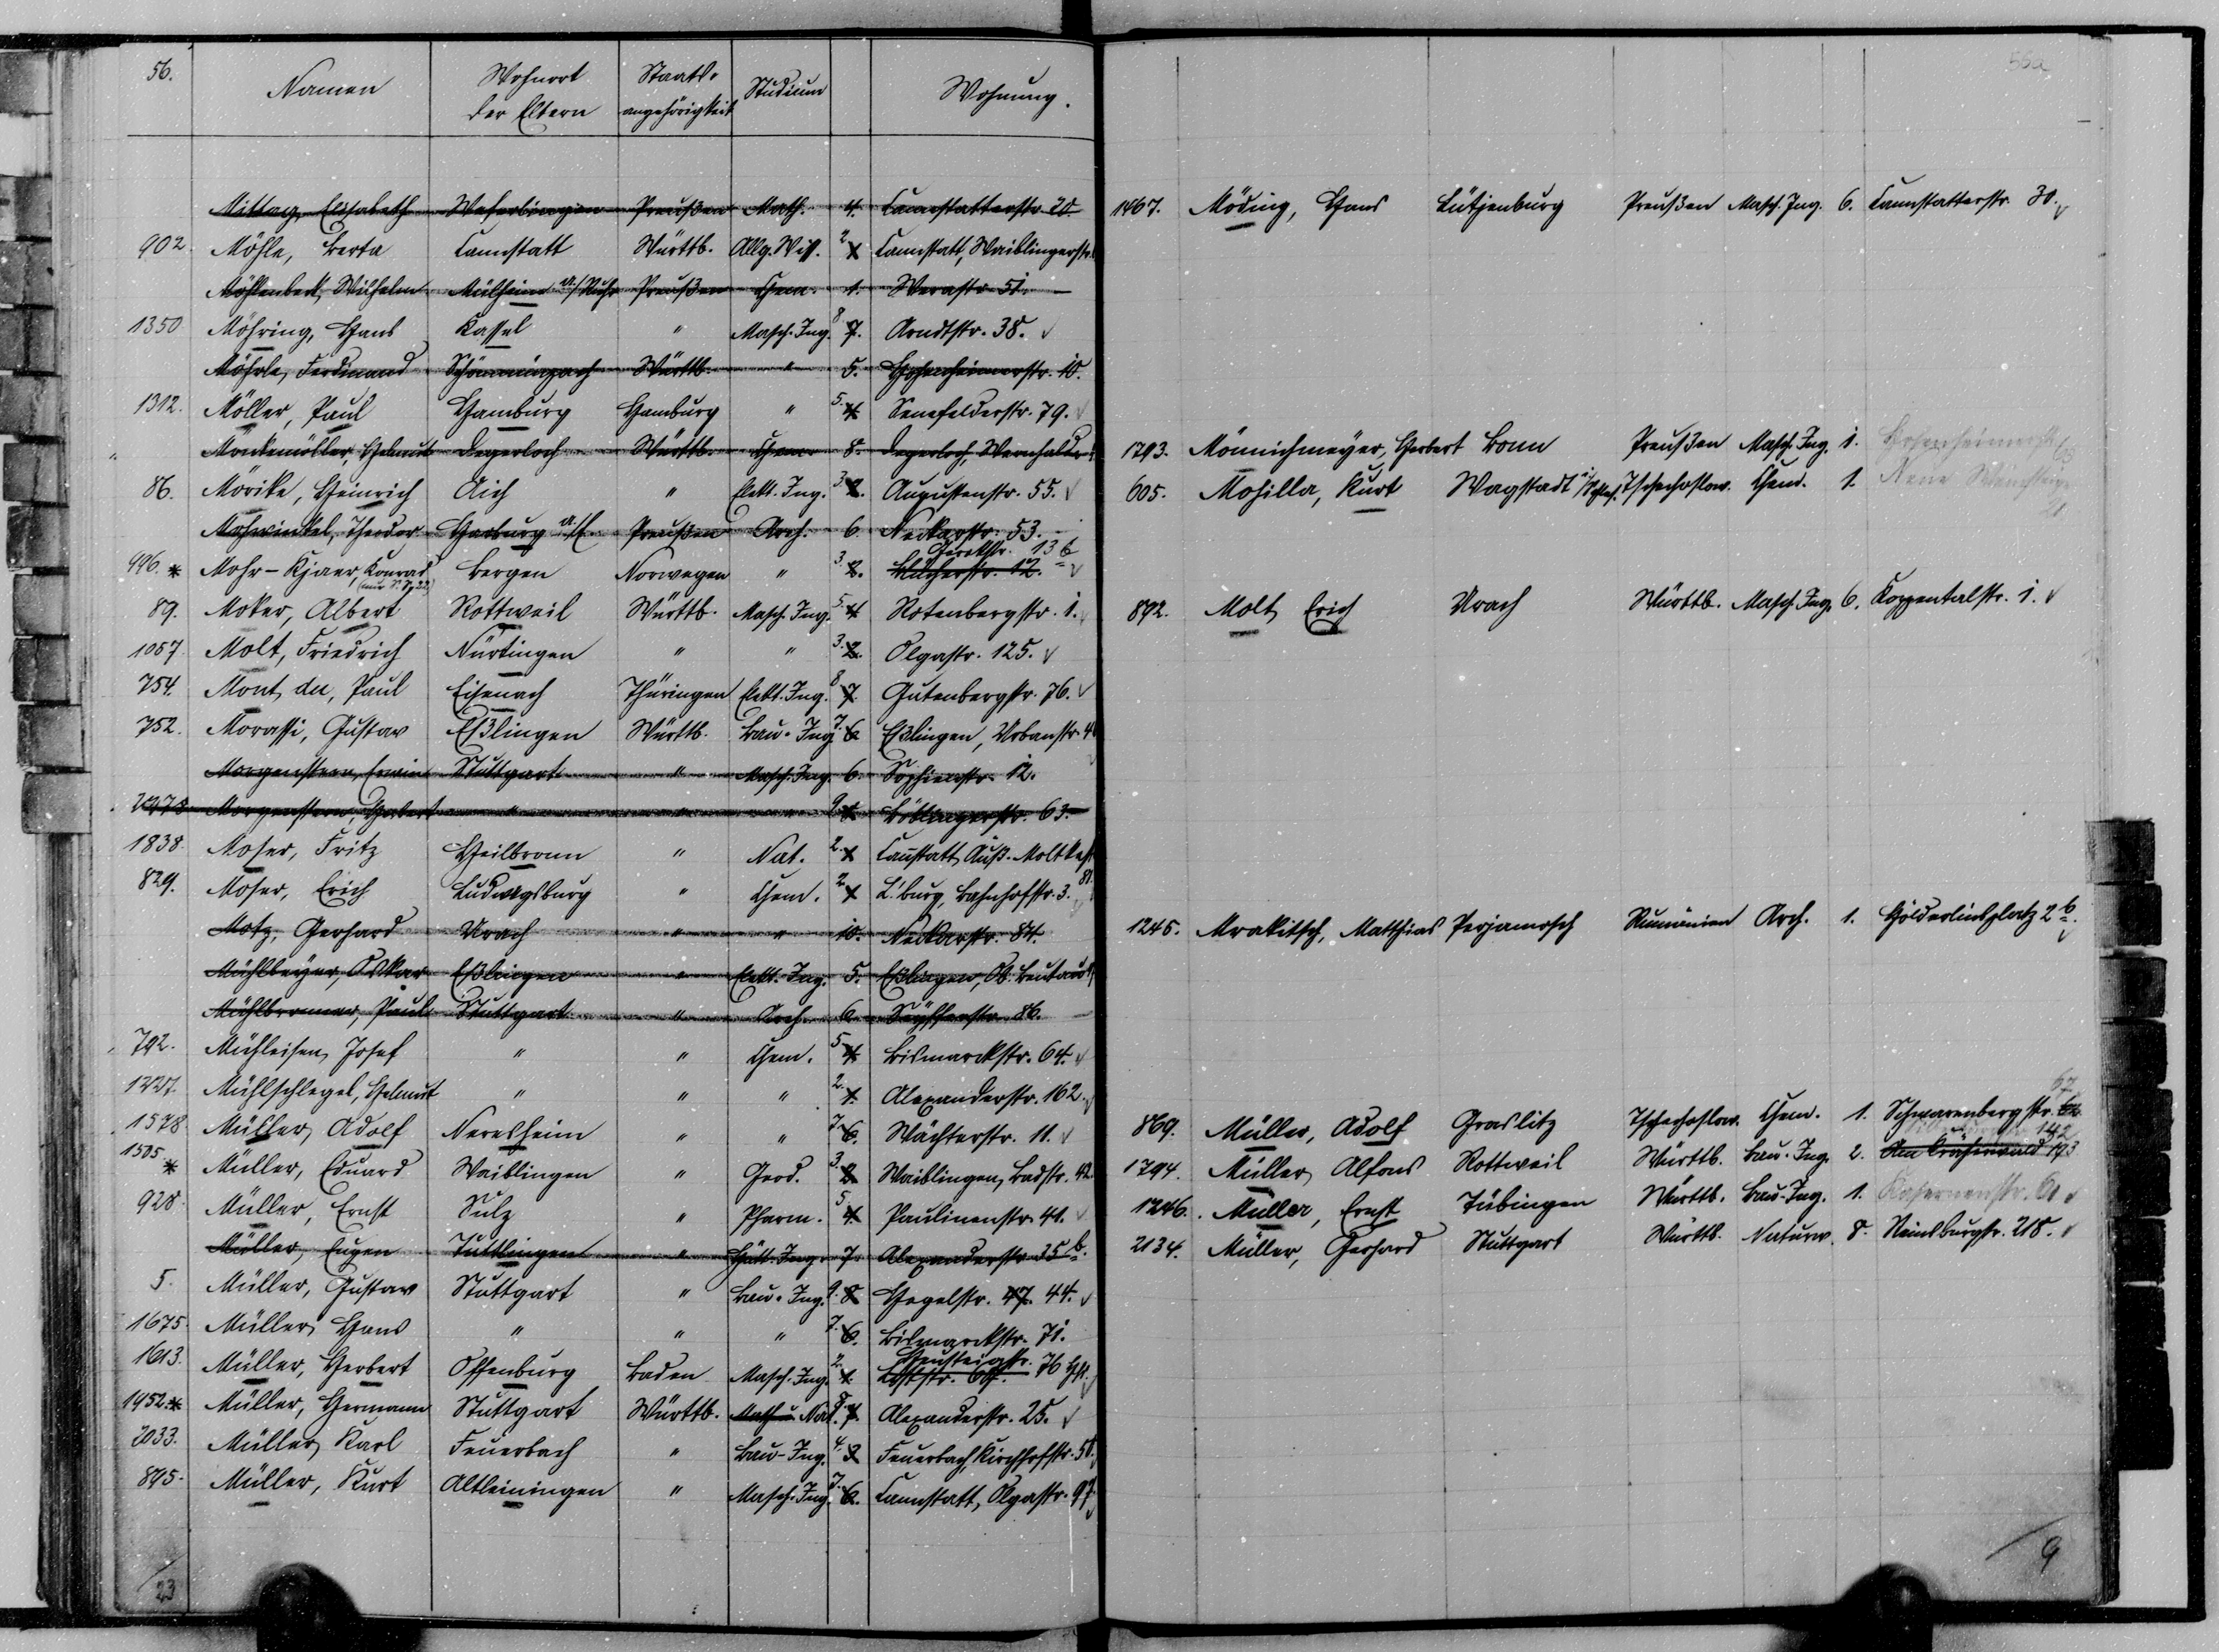 56.
Namen Wohnort der Eltern Staats-angehörigkeit Studium Wohnung.
Mittag, Elisabeth Weferlingen Preußen Math. 4. Cannstatterstr. 20.
902. Möhle, Berta Cannstatt Württb. Allg. Wiss. 2 1 Cannstatt, Waiblingerstr.
Möhlenbeck, Wilhelm Mülheim a./Ruhr Preußen Chem. 1. Werastr. 51.
1350 Möhring, Hans Kassel " Masch. Ing. 8 7. Arndtstr. 38. √
Möhrle, Ferdinand Schönmünzach Württb. " 5. Hohenheimerstr. 10.
1312. Möller, Paul Hamburg Hamburg " 5. 4 Senefelderstr. 79. √
Mönkemöller, Helmut Degerloch Württb. Chem. 8. Degerloch,
86. Mörike, Heinrich Aich " Elekt. Ing. 3. 2. Augustenstr. 55. √
Mohwinkel, Theodor Harburg a./E. Preußen Arch. 6. Neckarstr. 53.
996. * Mohr-Kjaer, Konrad Bergen Norwegen " 3. 2. Blücherstr. 12. 13 b √
89. Moker, Albert Rottweil Württb. Masch. Ing. 5. 4 Rotenbergstr. 1. √
1057. Molt, Friedrich Nürtingen " " 3. 2. Olgastr. 125. √
754. Mont, du, Paul Eisenach Thüringen Elekt. Ing. 8 7. Gutenbergstr. 76. √
752. Morassi, Gustav Eßlingen Württb. Bau-Ing. 7. 6. Eßlingen, Urbanstr. 4
Morgenstern, Erwin Stuttgart " Masch. Ing. 6. Sophienstr. 12.
Morgenstern, Herbert " " " 9. Böblingerstr. 63.
1838. Moser, Fritz Heilbronn " Nat. 2. 1 Cannstatt, Auß. Moltkestr.
829. Moser, Erich Ludwigsburg " Chem. 2 1 L'burg, Bahnhofstr. 3. √
Motz, Gerhard Urach " " 10. Neckarstr. 84.
Mühlbeyer, Oskar Eßlingen " Elekt. Ing. 5. Eßlingen, Ob. Beutaustr.
Mühlbronner, Paul Stuttgart " Arch. 6. Seyfferstr. 86.
792. Mühleisen, Josef " " Chem. 5 4. Bismarckstr. 64. √
1227. Mühlschlegel, Helmut " " " 2. 1. Alexanderstr. 162. √
1578. Müller, Adolf Neresheim " " 7. 6. Wächterstr. 11. √
1505 * Müller, Eduard Waiblingen " Geod. 3. 2. Waiblingen, Badstr. 42.
928. Müller, Ernst Sulz " Pharm. 5. 4. Paulinenstr. 41. √
Müller, Eugen Tuttlingen " Hütt. Ing. 7. Alexanderstr. 35 b.
5. Müller, Gustav Stuttgart " Bau-Ing. 9. 8 Hegelstr. 47. 44. √
1675. Müller, Hans " " " 7. 6. Bismarckstr. 71.
1613. Müller, Herbert Offenburg Baden Masch. Ing. 2. 1. 76 √
1952. * Müller, Hermann Stuttgart Württb. Math. u. Nat. 8. 7. Alexanderstr. 25. √
2033. Müller, Karl Feuerbach " Bau-Ing. 4. 3 Feuerbach, Kirchhofstr. 50.
895. Müller, Kurt Altleiningen " Masch. Ing. 7. 6. Cannstatt, Olgastr. 97
23
56a
1467. Möding, Hans Lütjenburg Preußen Masch. Ing. 6. Cannstatterstr. 30. √
1793. Mönnichmeyer, Herbert Bonn Preußen Masch. Ing. 1. Hohenheimerstr.
605. Mohilla, Kurt Wagstadt i/Schles. Tschechoslow. Chem. 1. Neue Weinsteige
892. Molt, Erich Urach Württb. Masch. Ing. 6. Koppentalstr. 1. √
1245. Mrakitsch, Matthias Perjamosch Rumänien Arch. 1. Hölderlinsplatz 2 b. √
869. Müller, Adolf Graslitz Tschechoslow. Chem. 1. Schwarenbergstr. 67
1794. Müller, Alfons Rottweil Württb. Bau-Ing. 2. Am Kräherwald 193 142
1246. Müller, Ernst Tübingen Württb. Bau-Ing. 1. Kasernenstr. 61 √
2134. Müller, Gerhard Stuttgart Württb. Naturw. 8. Reinsburgstr. 218. √
9